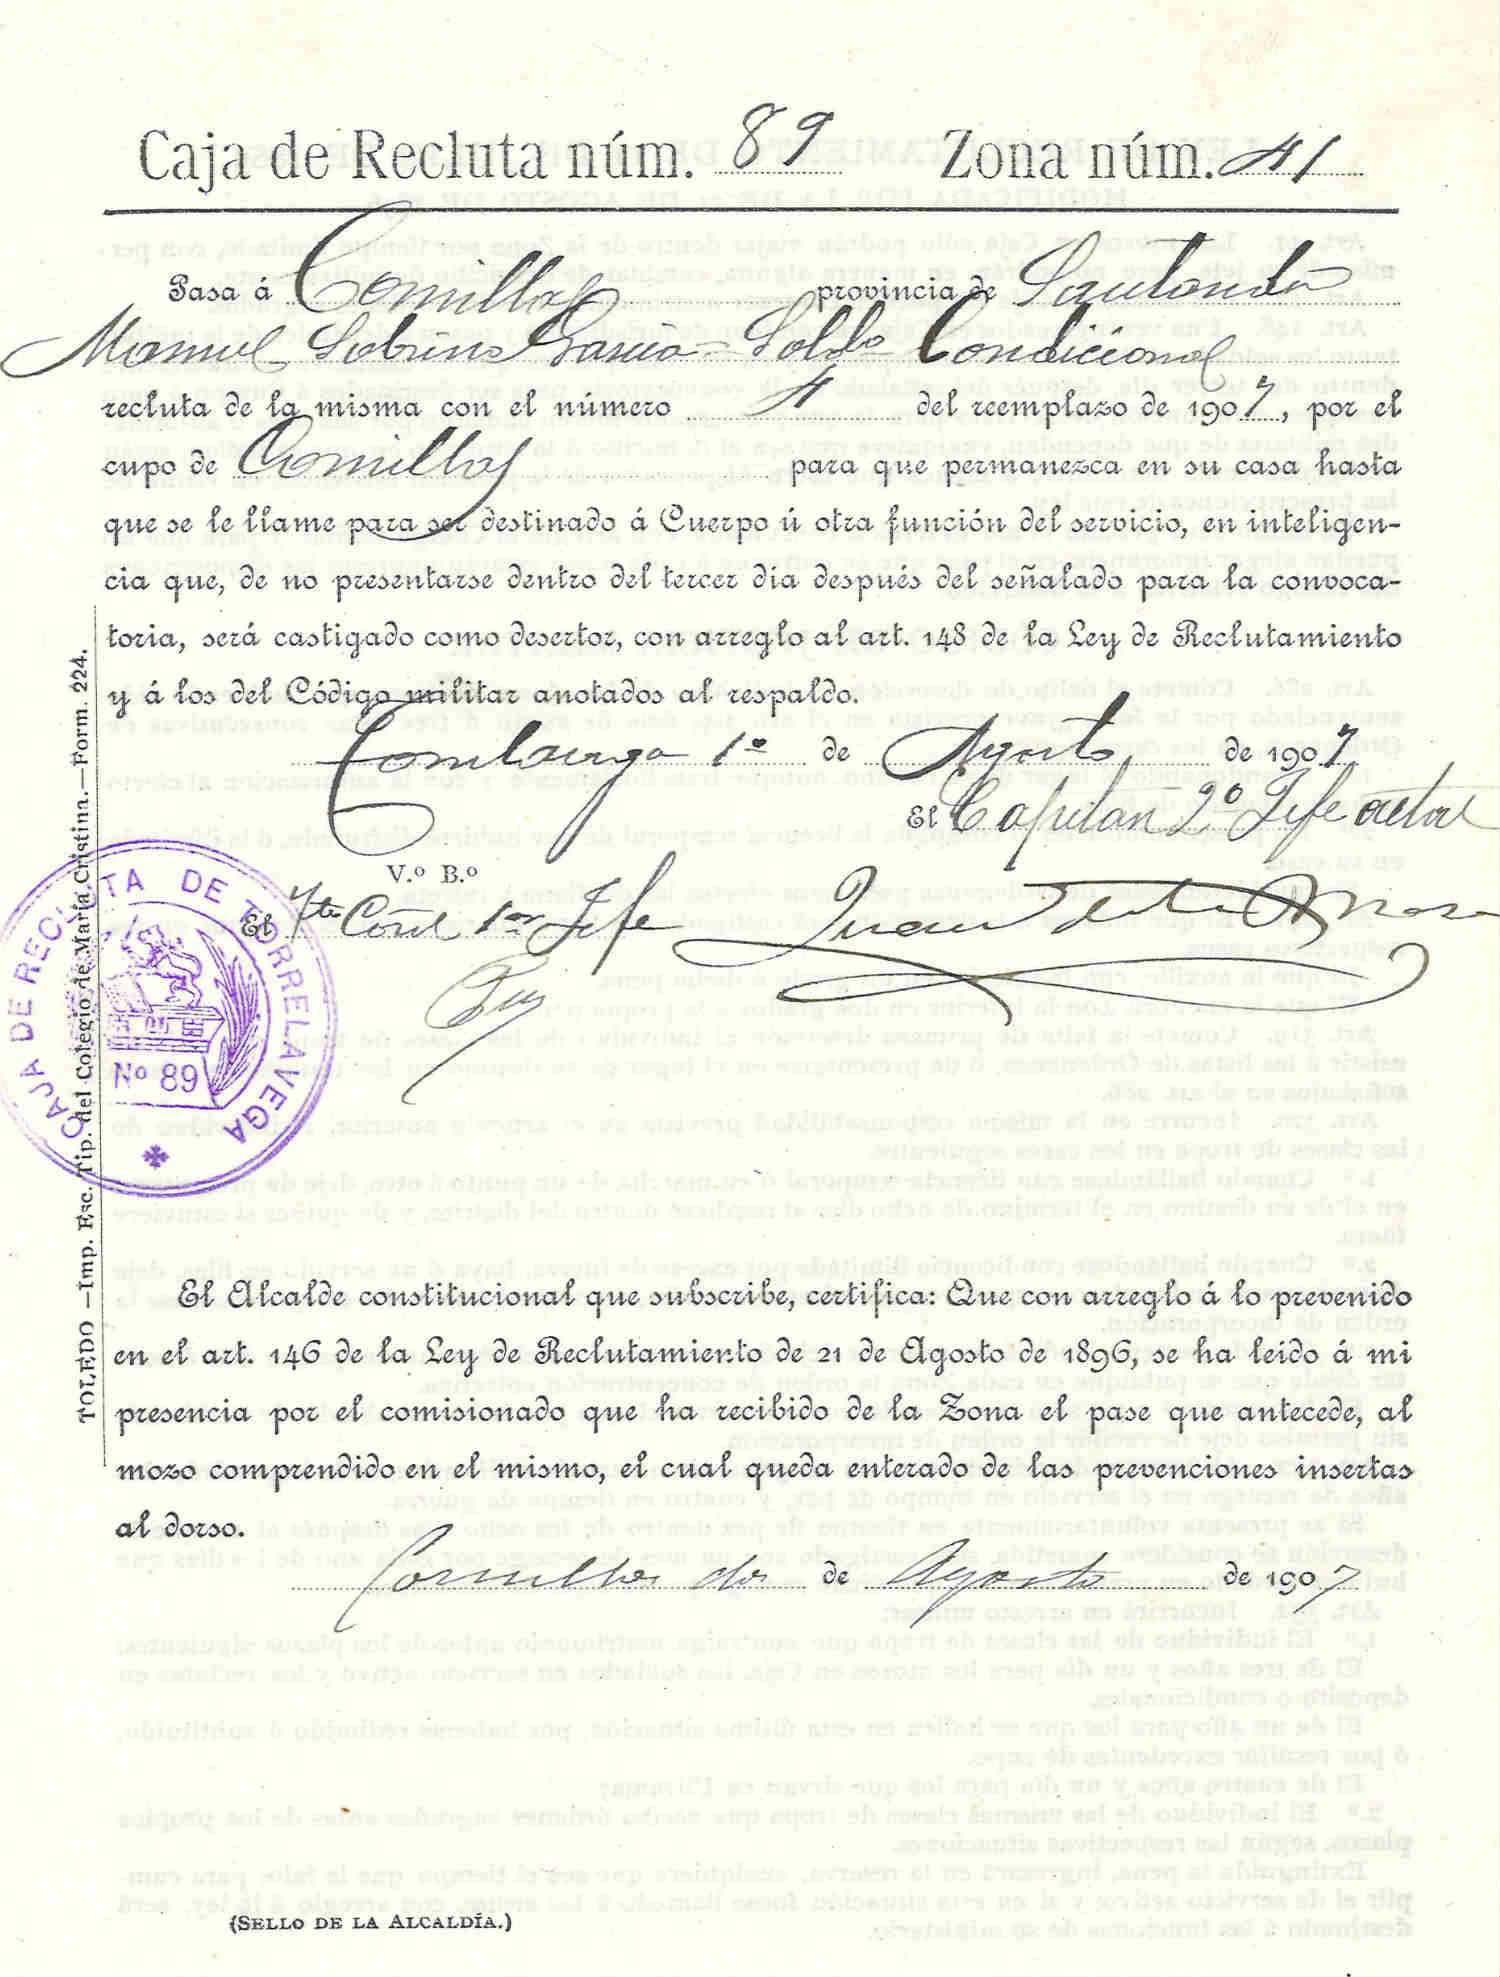 Caja de Recluta núm. 89 Zona núm. 41
Pasa á Comillas provincia de Santander
Manuel Sobrino Garcia = Soldo Condicional
recluta de la misma con el número 4 del reemplazo de 1907, por el
cupo de Comillas para que permanezca en su casa hasta
que se le llame para ser destinado á Cuerpo ú otra función del servicio, en inteligen-
cia que, de no presentarse dentro del tercer dia después del señalado para la convoca-
toria, será castigado como desertor, con arreglo al art. 148 de la Ley de Reclutamiento
y á los del Código militar anotados al respaldo.
Torrelavega 1º de Agosto de 1907
El Capitan 2º Jefe actal
V.º B.º
El Tte Cónl 1er Jefe
Juan
CAJA DE RECLUTA DE TORRELAVEGA
Nº 89
TOLEDO.—Imp. Esc. Tip. del Colegio de María Cristina.—Form. 224.
El Alcalde constitucional que subscribe, certifica: Que con arreglo á lo prevenido
en el art. 146 de la Ley de Reclutamiento de 21 de Agosto de 1896, se ha leido á mi
presencia por el comisionado que ha recibido de la Zona el pase que antecede, al
mozo comprendido en el mismo, el cual queda enterado de las prevenciones insertas
al dorso.
Comillas dos de Agosto de 1907
(SELLO DE LA ALCALDÍA.)